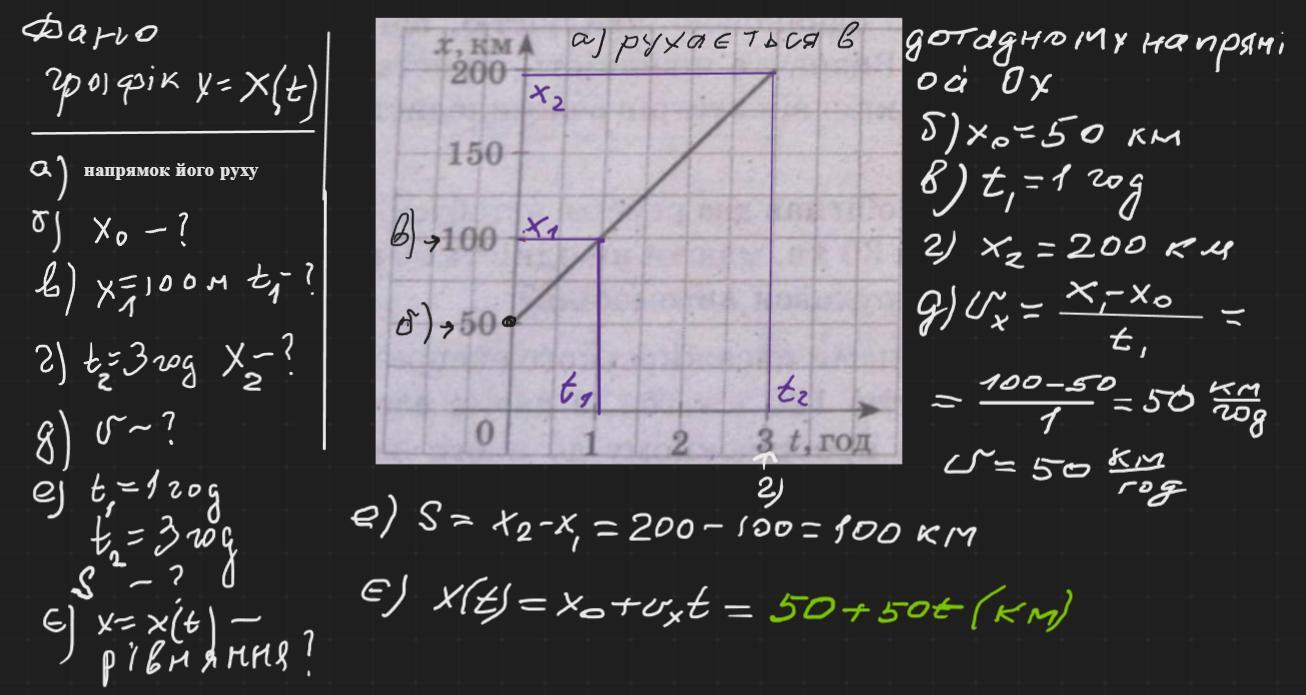 Дано
графік x = x(t)
а) напрямок його руху
б) x₀ – ?
в) x₁=100м t₁–?
г) t₂=3 год x₂–?
д) υ – ?
е) t₁=1 год
t₂=3 год
S – ?
є) x = x(t) –
рівняння?
x, км
200
150
100
50
0
1
2
3
t, год
x₂
x₁
t₁
t₂
в)→
б)→
г)
а) рухається в додадному напрямі
осі Ox
б) x₀=50 км
в) t₁=1 год
г) x₂=200 км
д) υₓ = (x₁–x₀)/t₁ =
= (100–50)/1 = 50 км/год
υ = 50 км/год
е) S = x₂–x₁ = 200 – 100 = 100 км
є) x(t) = x₀+υₓt = 50+50t (км)